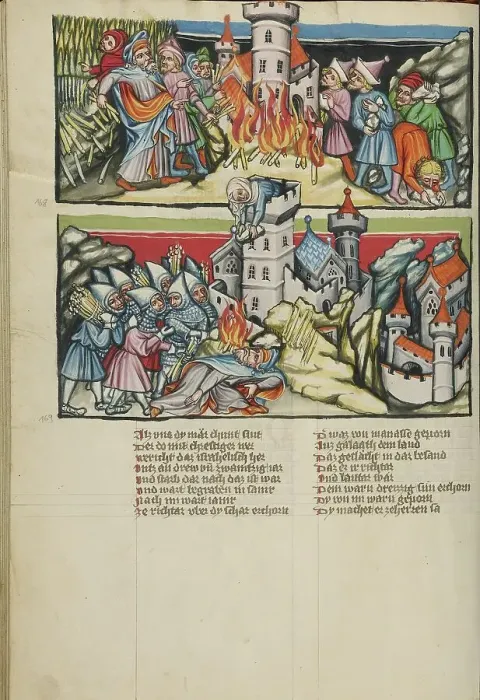 168
169
Als vns dy mär chunt sint
Der do mit chreftiger wer
daz israhelisch her
Intz an drew vn zwaintzig iar
Vnd starb dar nach daz ist war
Vnd wart begraben in samir
Nach im wart iair
Ze richtar vber dy schar erchorn
D waz von manasse geporn
Inz galaath dem land
Daz geslächt in dar besand
Daz er ir richtär
Vnd lantar war
Dem warn dreuzig sün erchorn
Dy von im warn geporn
Dy machet er zeherren sa